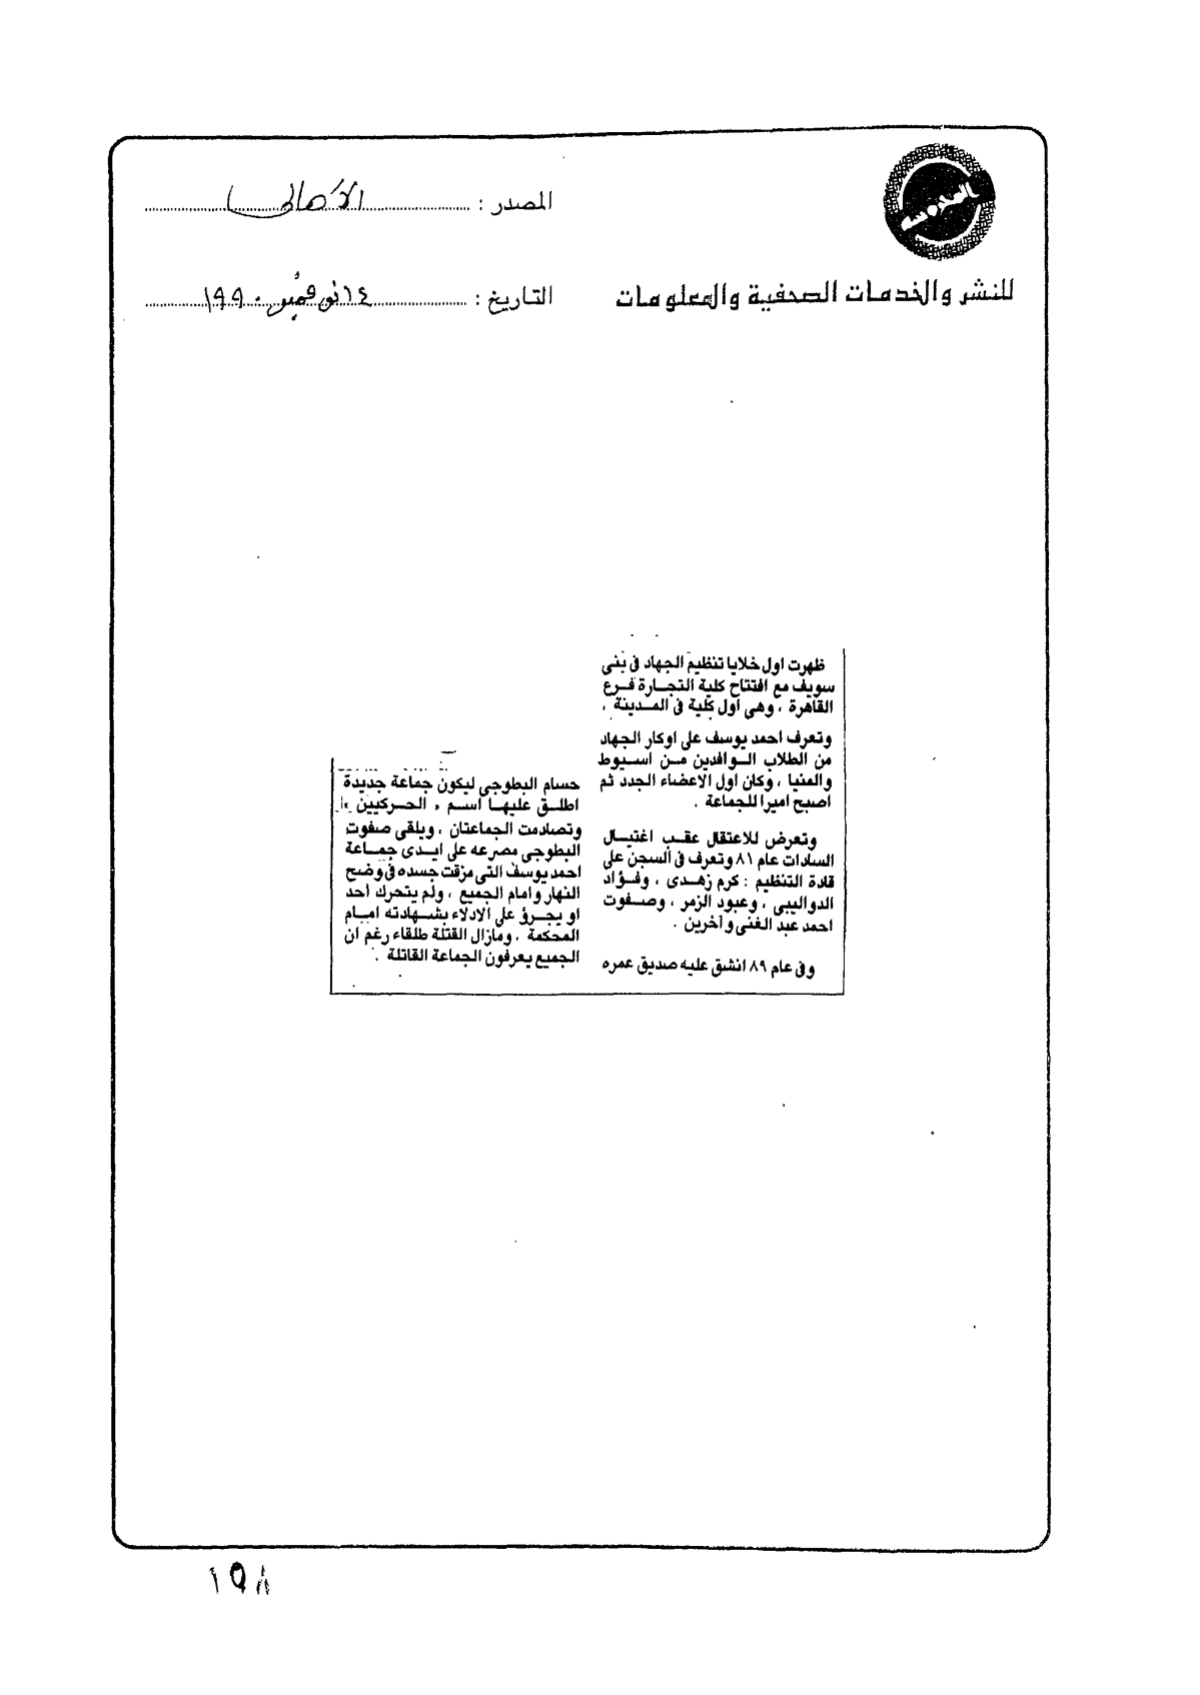 المصدر : الأهالى
التاريخ : ١٤ نوفمبر ١٩٩٠
للنشر والخدمات الصحفية والمعلومات
ظهرت اول خلايا تنظيم الجهاد فى بنى
سويف مع افتتاح كلية التجارة فرع
القاهرة ، وهى اول كلية فى المدينة .
وتعرف احمد يوسف على اوكار الجهاد
من الطلاب الوافدين من اسيوط
والمنيا ، وكان اول الاعضاء الجدد ثم
اصبح اميرا للجماعة .
وتعرض للاعتقال عقب اغتيال
السادات عام ٨١ وتعرف فى السجن على
قادة التنظيم : كرم زهدى ، وفؤاد
الدواليبى ، وعبود الزمر ، وصفوت
احمد عبد الغنى وآخرين .
وفى عام ٨٩ انشق عليه صديق عمره
حسام البطوجى ليكون جماعة جديدة
اطلق عليها اسم « الحركيين »
وتصادمت الجماعتان ، ويلقى صفوت
البطوجى مصرعه على ايدى جماعة
احمد يوسف التى مزقت جسده فى وضح
النهار وامام الجميع ، ولم يتحرك احد
او يجرؤ على الادلاء بشهادته امام
المحكمة ، ومازال القتلة طلقاء رغم ان
الجميع يعرفون الجماعة القاتلة .
١٩٨